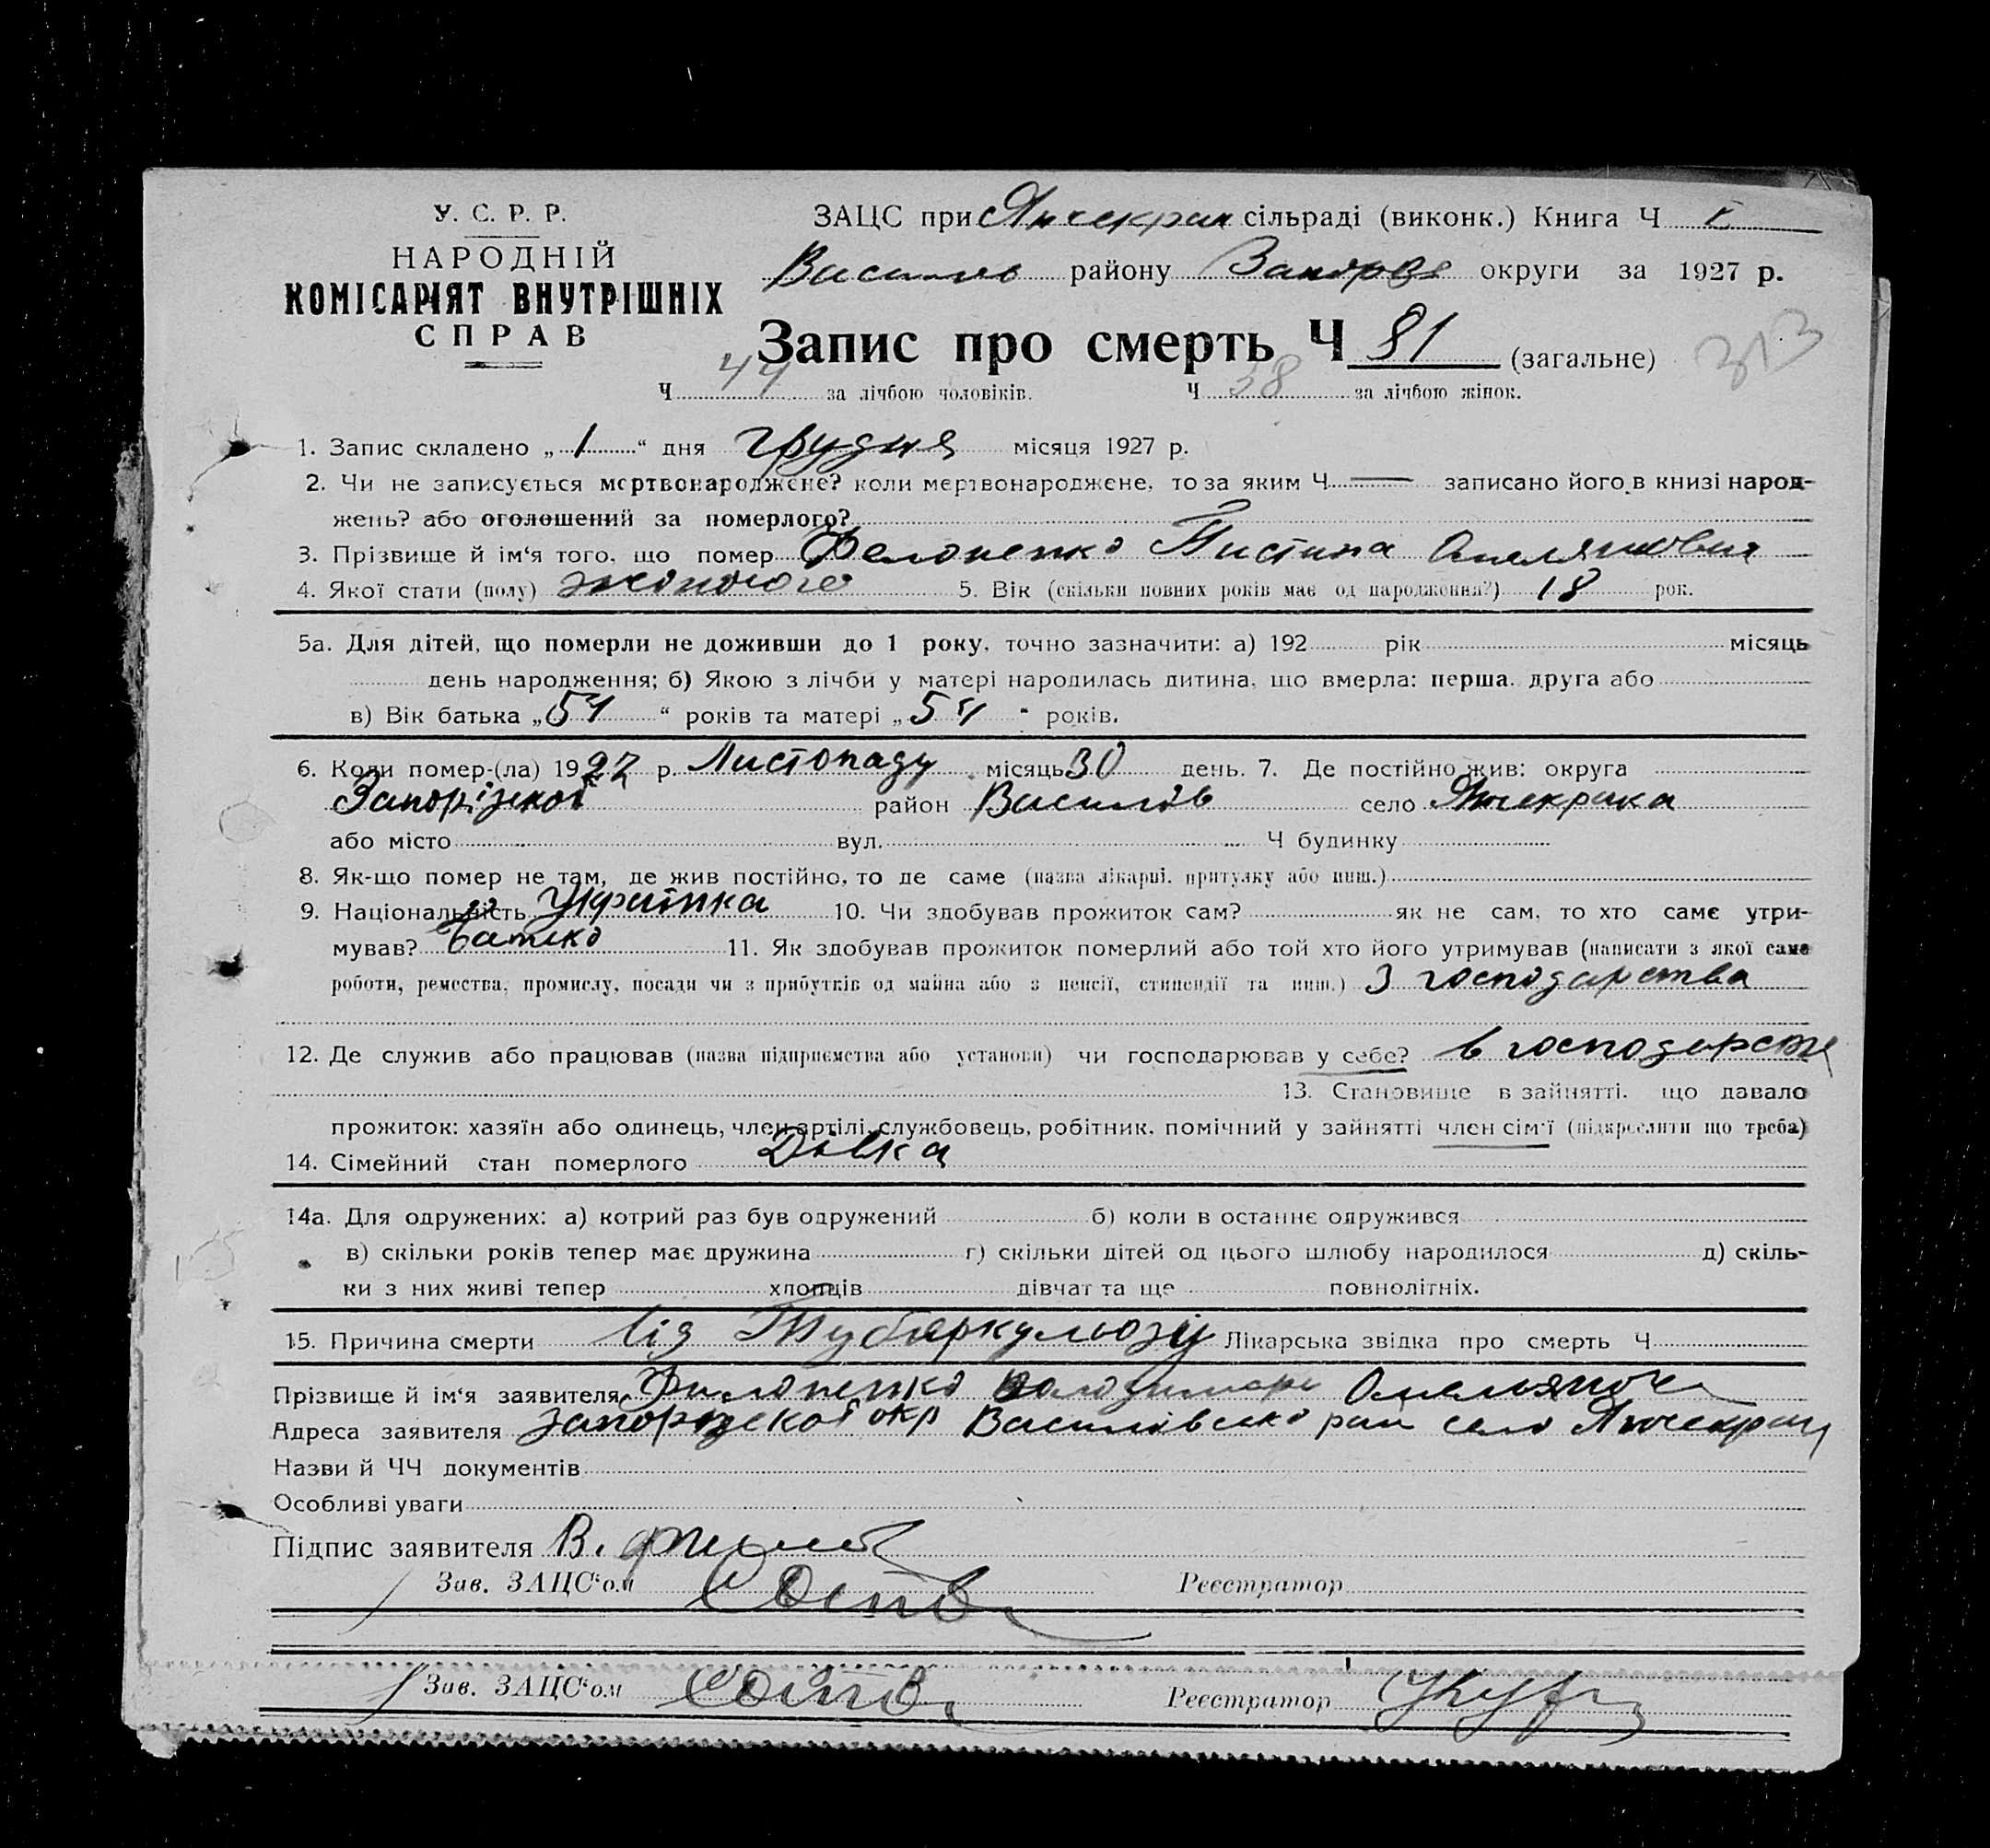 У. С. Р. Р.
НАРОДНІЙ
КОМІСАРІЯТ ВНУТРІШНІХ
СПРАВ
ЗАЦС при Янчекрак сільраді (виконк.) Книга Ч
Василів району Запорізь округи за 1927 р.
Запис про смерть Ч 81 (загальне) 313
Ч 44 за лічбою чоловіків. Ч 38 за лічбою жінок.
1. Запис складено „ 1 “ дня грудня місяця 1927 р.
2. Чи не записується мертвонароджене? коли мертвонароджене, то за яким Ч — записано його в книзі народ-
жень? або оголошений за померлого?
3. Прізвище й ім‘я того, що помер Филоненко Тистина Омеляновна
4. Якої стати (полу) жіночого 5. Вік (скільки повних років має од народження?) 18 рок.
5а. Для дітей, що померли не доживши до 1 року, точно зазначити: а) 192 рік місяць
день народження; б) Якою з лічби у матері народилась дитина, що вмерла: перша, друга або
в) Вік батька „ 54 “ років та матері „ 54 “ років.
6. Коли помер-(ла) 1927 р. Листопаду місяць 30 день. 7. Де постійно жив: округа
Запорізької район Василів село Янчекрака
або місто вул. Ч будинку
8. Як-що помер не там, де жив постійно, то де саме (назва лікарні, притулку або инш.)
9. Національність Українка 10. Чи здобував прожиток сам? як не сам, то хто саме утри-
мував? батько 11. Як здобував прожиток померлий або той хто його утримував (написати з якої саме
роботи, ремества, промислу, посади чи з прибутків од майна або з пенсії, стипендії та инш.) З господарства
12. Де служив або працював (назва підприємства або установи) чи господарював у себе? в господарстві
13. Становище в зайнятті, що давало
прожиток: хазяїн або одинець, член артілі, службовець, робітник, помічний у зайнятті член сім‘ї (підкреслити що треба)
14. Сімейний стан померлого Дівка
14а. Для одружених: а) котрий раз був одружений б) коли в останнє одружився
в) скільки років тепер має дружина г) скільки дітей од цього шлюбу народилося д) скіль-
ки з них живі тепер хлопців дівчат та ще повнолітніх.
15. Причина смерти Від Тубєркульозу Лікарська звідка про смерть Ч
Прізвище й ім‘я заявителя Филоненко Володимирь Омельянович
Адреса заявителя Запорізької окр Василівсько рай село Янчекрак
Назви й ЧЧ документів
Особливі уваги
Підпис заявителя В.
Зав. ЗАЦС‘ом Реєстратор
Зав. ЗАЦС‘ом Реєстратор